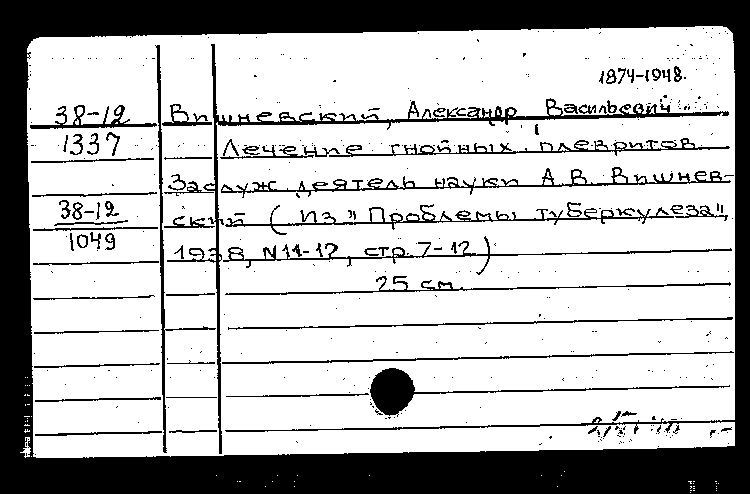 1874-1948.
38-12 Вишневский, Александр Васильевич
1337 Лечение гнойных плевритов.
Заслуж. деятель науки А.В. Вишнев-
38-12 ский ( Из "Проблемы туберкулеза",
1049 1938, N11-12, стр. 7-12)
25 см.